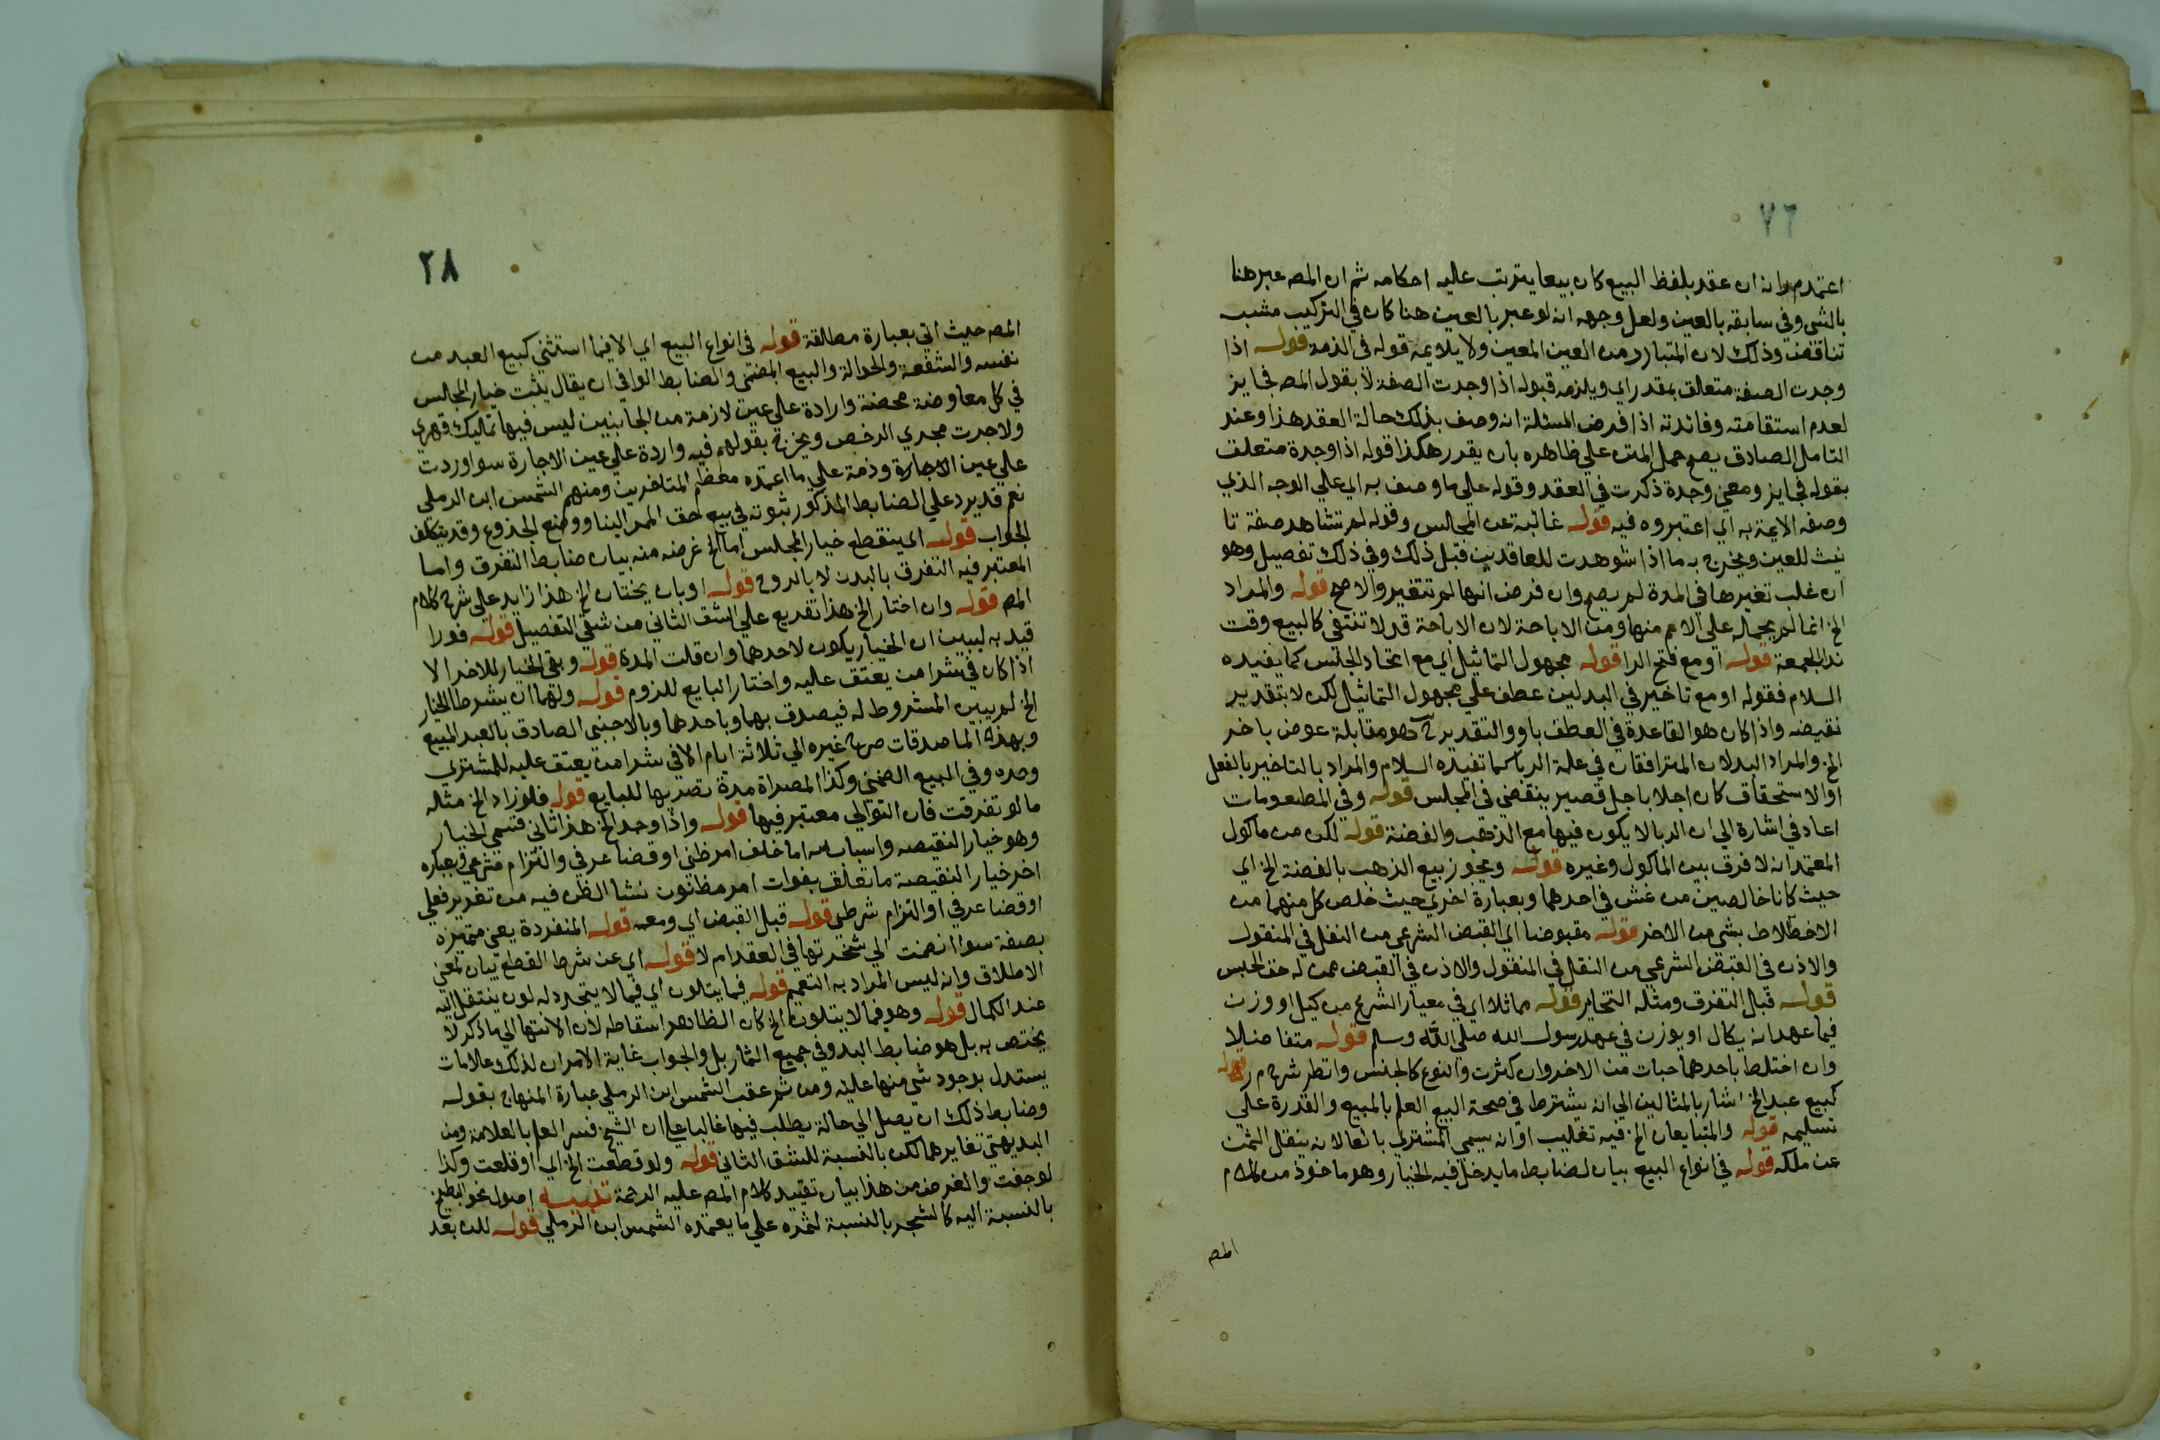 ٧٦
اعتمده م ر انه ان عقد بلفظ البيع كان بيعا يترتب عليه احكامه ثم ان المصه عبر هنا
بالشي وفي سابقه بالعين ولعل وجهه انه لو عبر بالعين هنا كان في التركيب مشبه
تناقض وذلك لان المتبادر من العين المعين ولا يلايمه قوله في الذمه قوله اذا
وجدت الصفة متعلق بمقدر اي ويلزمه قبوله اذا وجدت الصفة لا بقول المصه فجايز
لعدم استقامته وفائدته اذا فرض المسئلة انه وصف بذلك حالة العقد هذا وعند
التامل الصادق يصح حمل المتن علي ظاهره بان يقرر هكذا قوله اذا وجدة متعلق
بقوله في ايز ومعني وجدة ذكرت في العقد وقوله علي ما وصف به اي علي الوجه الذي
وصفه الايمة به اي اعتبروه فيه قوله غائبة عن المجالس وقوله لم تشاهد صفة تا
نيث للعين ويخرج به ما اذا شوهدت للعاقدين قبل ذلك وفي ذلك تفصيل وهو
ان غلب تغيرها في المدة لم يصح وان فرض انها لم تتغير والا صح قوله والمراد
الخ انما لم يحمله علي الاعم منها ومن الاباحة لان الاباحة قد لا تنتفي كالبيع وقت
ندا الجمعة قوله او مع فتح الرا قوله مجهول التماثيل اي مع اتحاد الجالس كما يفيده
السلام فقوله او مع تاخير في البدلين عطف علي مجهول التماثيل لكن لا بتقدير
نقيضه واذا كان هو القاعدة في العطف باو والتقدير ح وهو مقابلة عوض باخر
الخ والمراد البدلان المترافقان في علة الربا كما تفيده السلام والمراد بالتاخير بالفعل
او الاستحقاق كان اجلا باجل قصير ينقضي في المجلس قوله وفي المطعومات
اعاد في اشارة الي ان الربا لا يكون فيها مع الذهب والفضة قوله لكن من ماكول
المعتمد انه لا فرق بين الماكول وغيره قوله ويجوز بيع الذهب بالفضة الخ اي
حيث كانا خالصين من غش في احدهما وبعبارة اخري حيث خلص كل منهما من
الاختلاط بشي من الاخر قوله مقبوضا اي القبض الشرعي من النقل في المنقول
والاذن في القبض الشرعي من النقل في المنقول والاذن في القبض ممن له حق الحبس
قوله قبل التفرق ومثله التخاير قوله مماثلا اي في معيار الشرع من كيل او وزن
فيما عهد انه يكال او يوزن في عهد رسول الله صلي الله وسلم قوله متفاضلا
وان اختلط باحدهما حبات من الاخر وان كثرت والنوع كالجنس وانظر شرح م ر قوله
كبيع عبد الخ اشار بالمثالين الي انه يشترط في صحة البيع العلم بالمبيع والقدرة علي
تسليمه قوله والمتبايعان الخ فيه تغليب او انه يسمي المشتري بائعا لانه ينقل الثمن
عن ملكه قوله في انواع البيع بيان لضابط ما يدخل فيه الخيار وهو ماخوذ من كلام
المصه
٢٨
المصه حيث اتي بعبارة مطالقة قوله في انواع البيع اي الا فيما استثني كبيع العبد من
نفسه والشفعة والحوالة والبيع الضمني والضابط الوافي ان يقال يثبت خيار المجالس
في كل معاوضة محضة وارادة علي عين لازمة من الجانبين ليس فيها تمليك قهري
ولا جرت مجري الرخص ويخرج بقولهم فيه واردة علي عين الاجارة سوا وردت
علي عين الاجارة وذمة علي ما اعتمده معظم المتاخرين ومنهم الشمس ابن الرملي
نعم قد يرد علي الضابط المذكور ثبوته في بيع حق الممر البنا ووضع الجذوع وقد يتكلف
الجواب قوله اي ينقطع خيار المجلس اما الخ غرضه منه بيان ضابط التفرق واما
المعتبر فيه التفرق بالبدن لا بالروح قوله او بان يختارا الخ هذا زايد علي شرح كلام
المصه قوله وان اختار الخ هذا تفريع علي الشق الثاني من شقي التفصيل قوله فورا
قيد به ليبين ان الخيار يكون لاحدهما وان قلت المدة قوله وبقي الخيار للاخر الا
اذا كان في شرا من يعتق عليه واختار البايع للزوم قوله ولهما ان يشرطا الخيار
الخ لم يبين المشروط له فيصدق بهما وباحدهما وبالاجنبي الصادق بالعبد المبيع
وبهذه الماصدقات صرح غيره الي ثلاثة ايام الا في شرا من يعتق عليه للمشتري
وحده وفي البيع الضمني وكذا المصراة مدة تصريها للبايع قوله فلو زاد الخ مثله
ما لو تفرقت فان التوالي معتبر فيها قوله واذا وجد الخ هذا ثاني قسمي الخيار
وهو خيار النقيصه واسبابه اما خلف امر ظني او قضا عرفي والتزام شرعي وبعباره
اخر خيار النقيصة ما تعلق بفوات امر مظنون نشا الظن فيه من تغرير فعلي
او قضا عرفي او التزام شرطي قوله قبل القبض اي ومعه قوله المنفردة يعني متميزه
بصفة سوا انضمت الي شجرتها في العقد ام لا قوله اي عن شرط القطع بيان لمعني
الاطلاق وانه ليس المراد به التعميم قوله فيما يتلون اي فيما لا يتجرد له لون ينتقل اليه
عند الكمال قوله وهو فيما لا يتلون الخ كان الظاهر اسقاطه لان الانتها الي ما ذكر لا
يختص به بل هو ضابط البدو في جميع الثمار بل والجواب غاية الامر ان لذلك علامات
يستدل بوجود شي منها عليه ومن ثم عقب الشمس ابن الرملي عبارة المنهاج بقوله
وضابط ذلك ان يصل الي حالة يطلب فيها غالبا علي ان الشيخ فسر العلم بالعلامة ومن
البديهي تغايرهما لكن بالنسبة للشق الثاني قوله ولو قطعت الخ اي او قلعت وكذا
لو جفت والغرض من هذا بيان تقييد كلام المصه عليه الرحمة تنبيه اصول نحو البطيخ
بالنسبة اليه كالشجر بالنسبة لثمره علي ما يعتمده الشمس ابن الرملي قوله للبعد